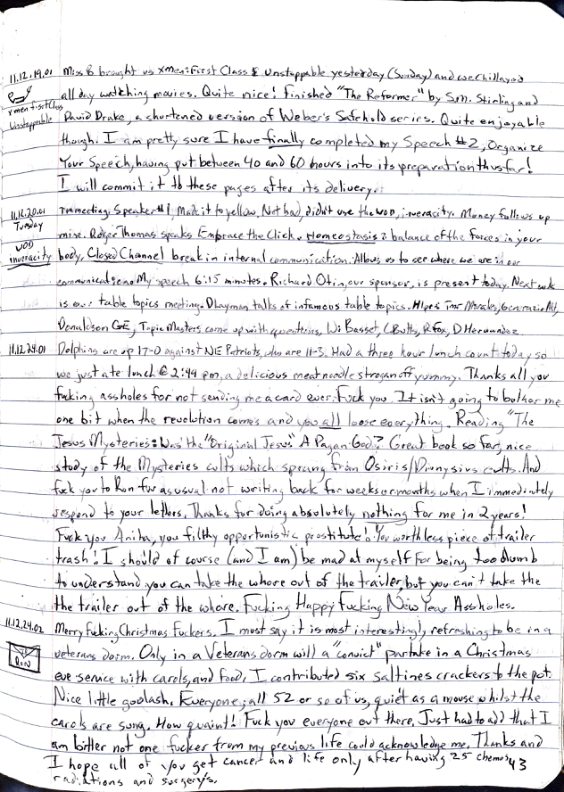 11.12.19.01 Miss B brought us xmen: First Class & Unstoppable yesterday (Sunday) and we chillaxed
all day watching movies. Quite nice! Finished "The Reformer" by S.M. Stirling and
xmen First Class
Unstoppable
David Drake, a shortened version of Weber's Safehold series. Quite enjoyable
though. I am pretty sure I have finally completed my Speech #2, Organize
Your Speech, having put between 40 and 60 hours into its preparation thus far!
I will commit it to these pages after its delivery.
11.12.20.01 TM meeting: Speaker #1, Made it to yellow, Not bad, didn't use the WOD, inveracity. Money follows up
Tuesday
mine. Roger Thomas speaks Embrace the Click. Homeostasis: balance of the forces in your
WOD
inveracity
body, Closed Channel break in internal communication. Allows us to see where we are in our
communication. My speech 6:15 minutes. Richard Otin, our sponsor, is present today. Next week
is our table topics meeting. D Layman talks of infamous table topics. Morales,
Donaldson GE, Topic Masters come up with questions, W. Basset, C Butts, R Fox, D Hernandez
11.12.24.01 Dolphins are up 17-0 against NE Patriots, who are 11-3. Had a three hour lunch count today so
we just ate lunch @ 2:49 pm, a delicious meat noodle stroganoff yummy. Thanks all you
fucking assholes for not sending me a card ever. Fuck you. It isn't going to bother me
one bit when the revolution comes and you all loose everything. Reading "The
Jesus Mysteries: Was the "Original Jesus" A Pagan God? Great book so far, nice
study of the Mysteries cults which sprang from Osiris/Dionysius cults. And
fuck you to Ron for as usual not writing back for weeks or months when I immediately
respond to your letters. Thanks for doing absolutely nothing for me in 2 years!
Fuck you you filthy opportunistic prostitute. You worthless piece of trailer
trash! I should of course (and I am) be mad at myself for being too dumb
to understand you can take the whore out of the trailer, but you can't take the
the trailer out of the whore. Fucking Happy Fucking New Year Assholes.
11.12.24.02 Merry Fucking Christmas Fuckers. I must say it is most interestingly refreshing to be in a
Ron
veterans dorm. Only in a Veterans dorm will a "convict" partake in a Christmas
eve service with carols, and food, I contributed six saltines crackers to the pot.
Nice little goulash. Everyone, all 52 or so of us, quiet as a mouse whilst the
carols are sung. How quaint! Fuck you everyone out there. Just had to add that I
am bitter not one fucker from my previous life could acknowledge me. Thanks and
I hope all of you get cancer and life only after having 25 chemos 43
radiations and surgerys.